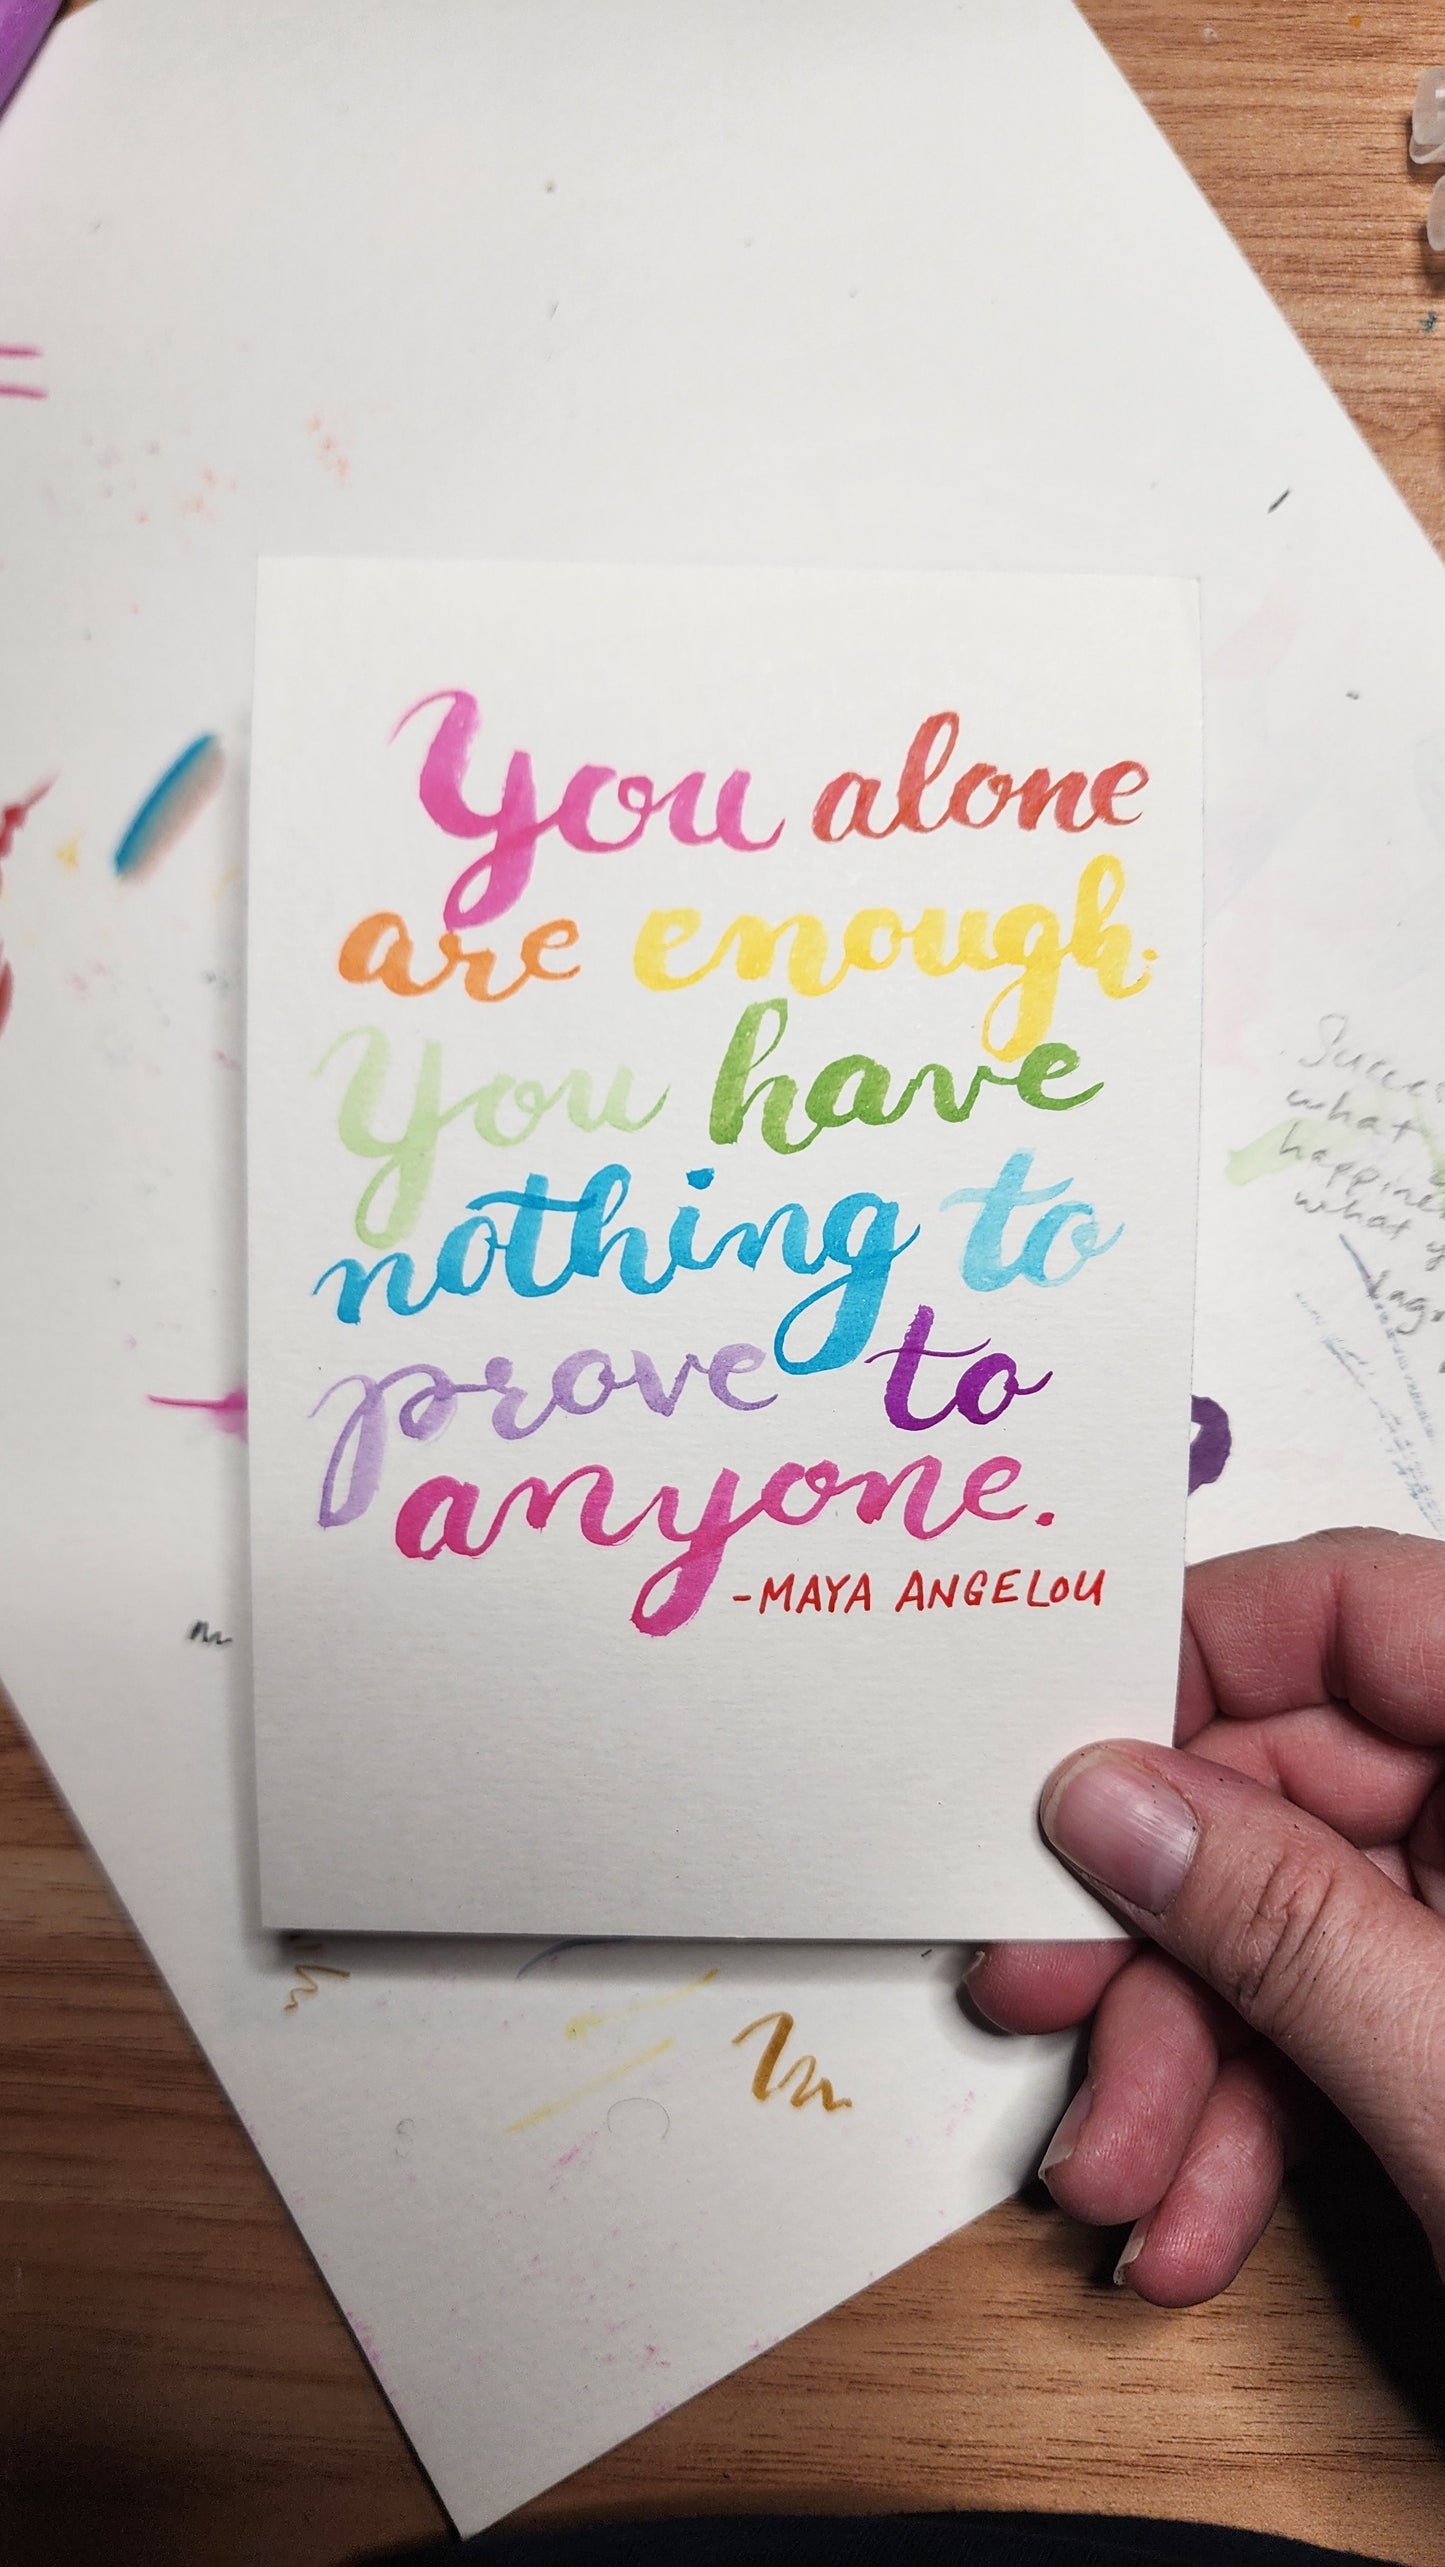 You alone
are enough.
You have
nothing to
prove to
anyone.
-MAYA ANGELOU
what
what